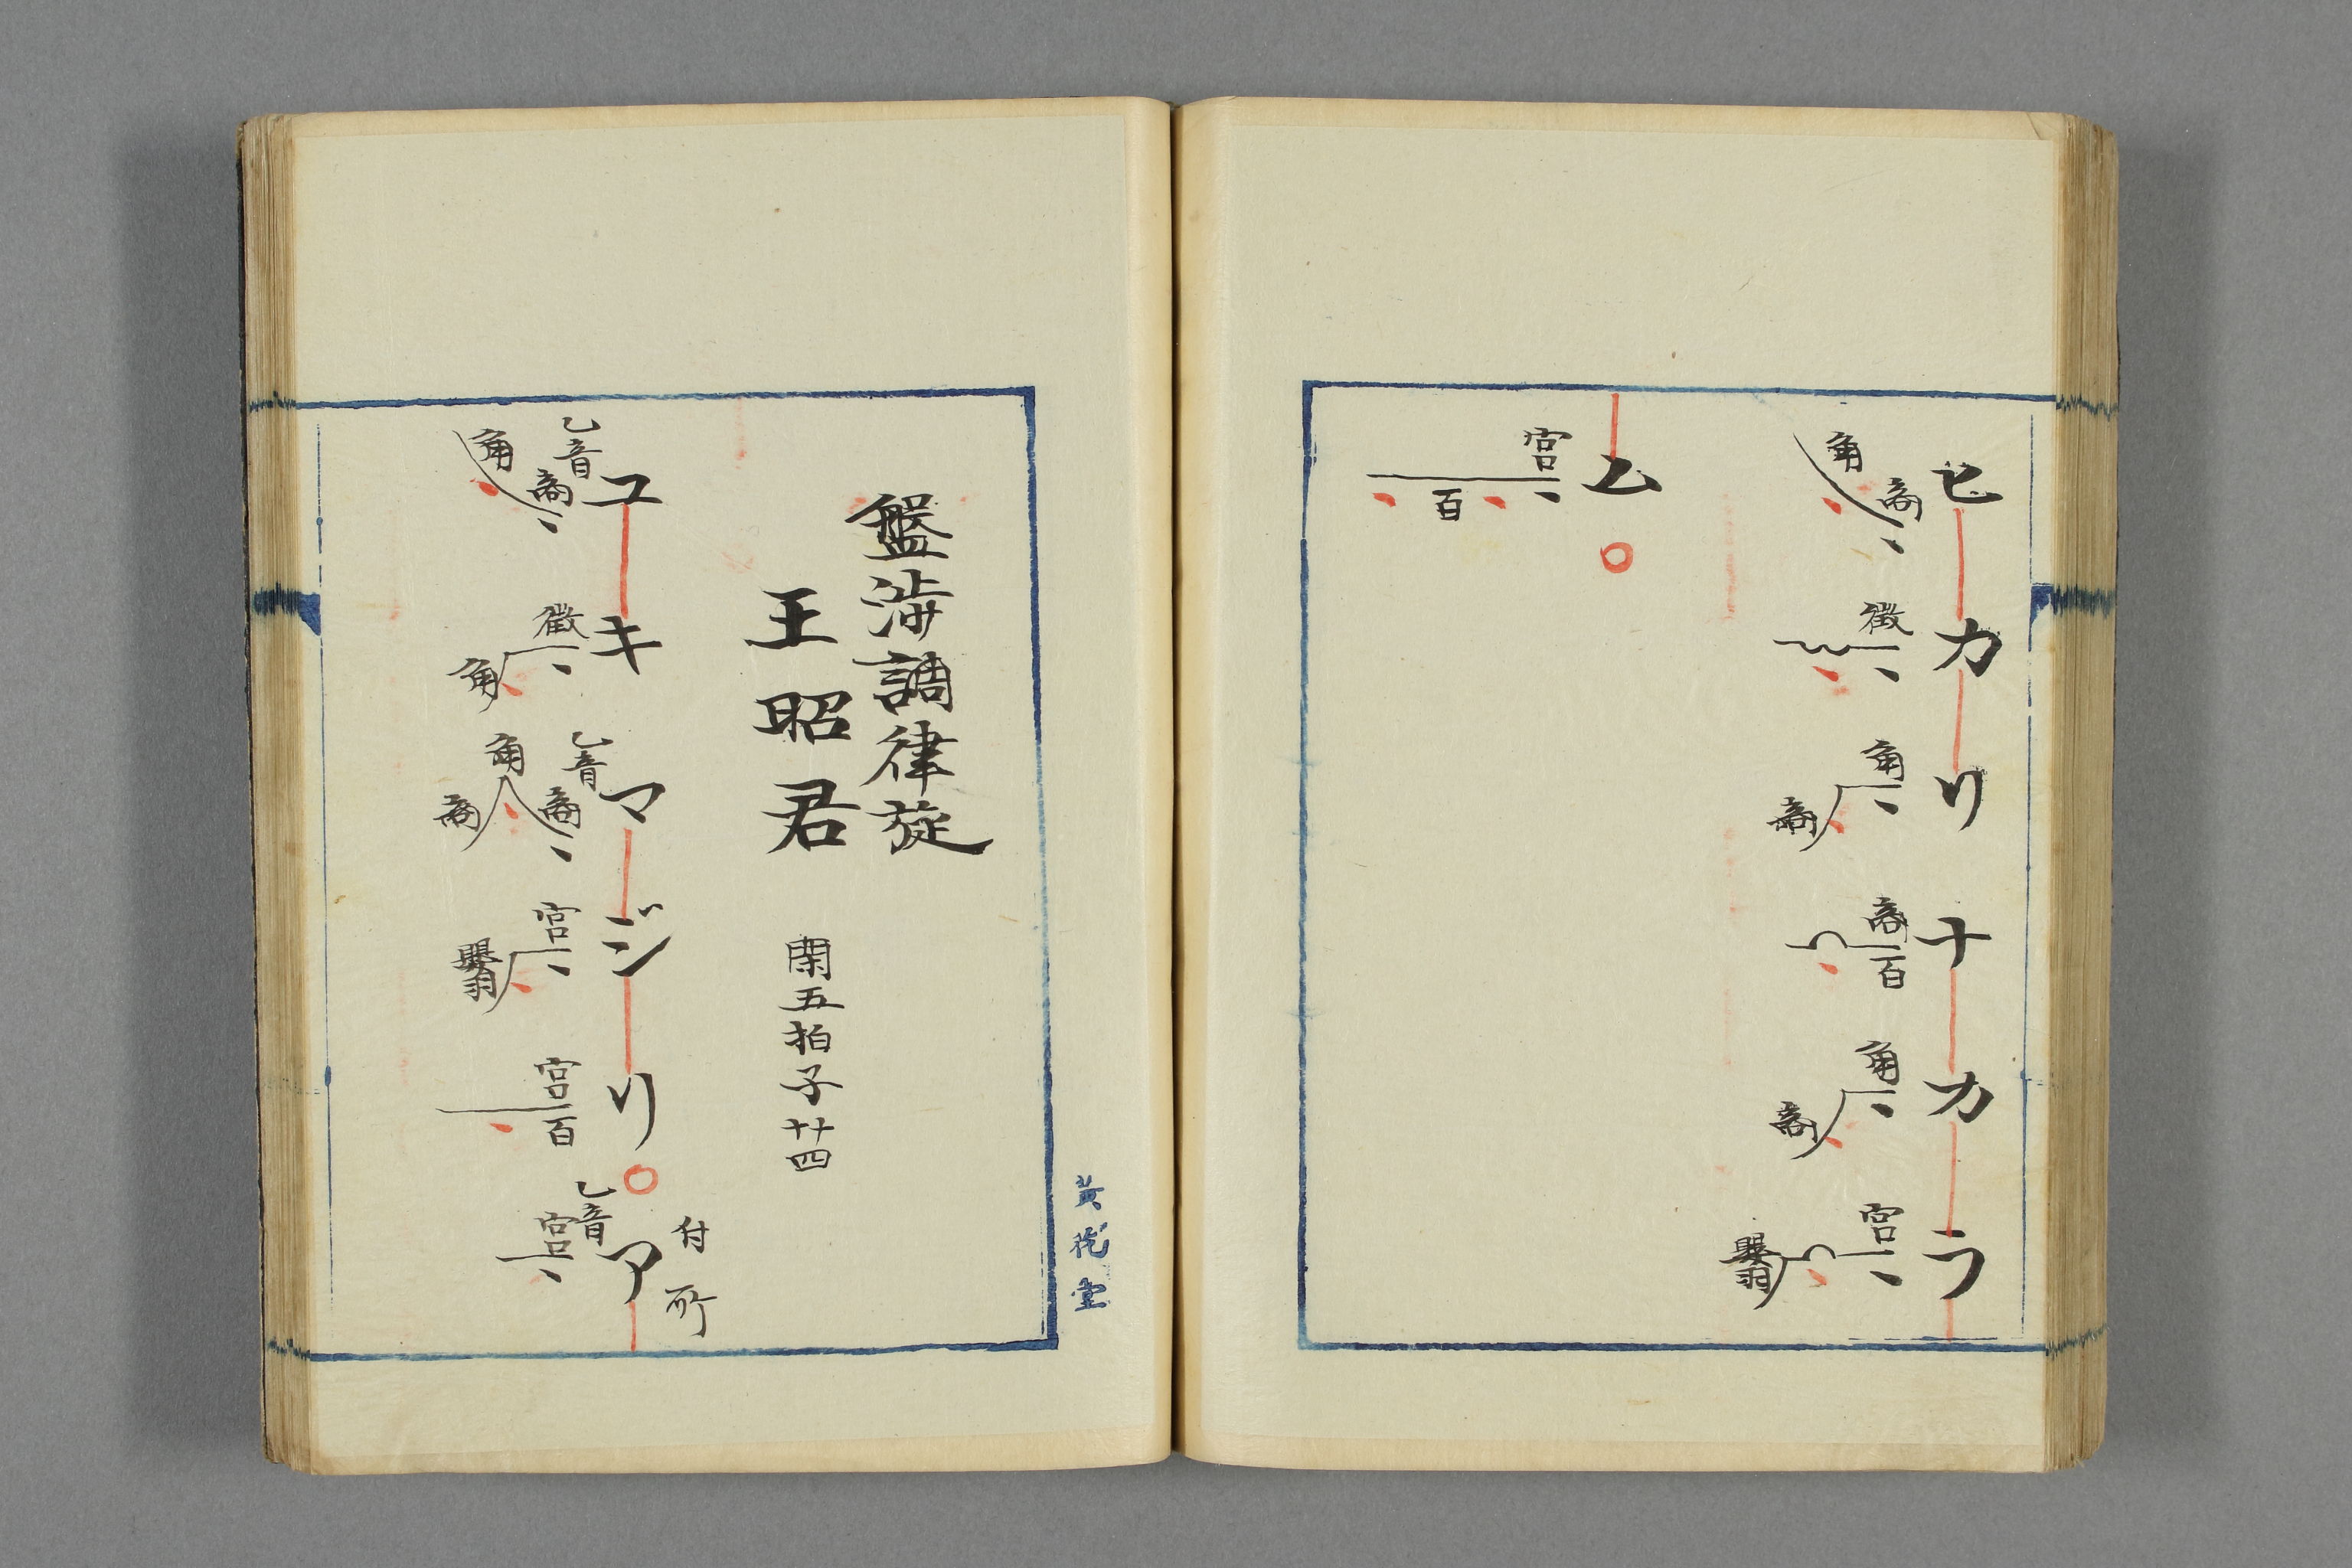 ヒカリナカラ
商角
徴
角商
商百
角商
宮嬰羽
ム
宮百
盤渉調律旋
王昭君 閑五拍子廿四
付所
ユキマジリ
ア
乙音商角
徴角
乙音商角商
宮嬰羽
宮百
乙音宮